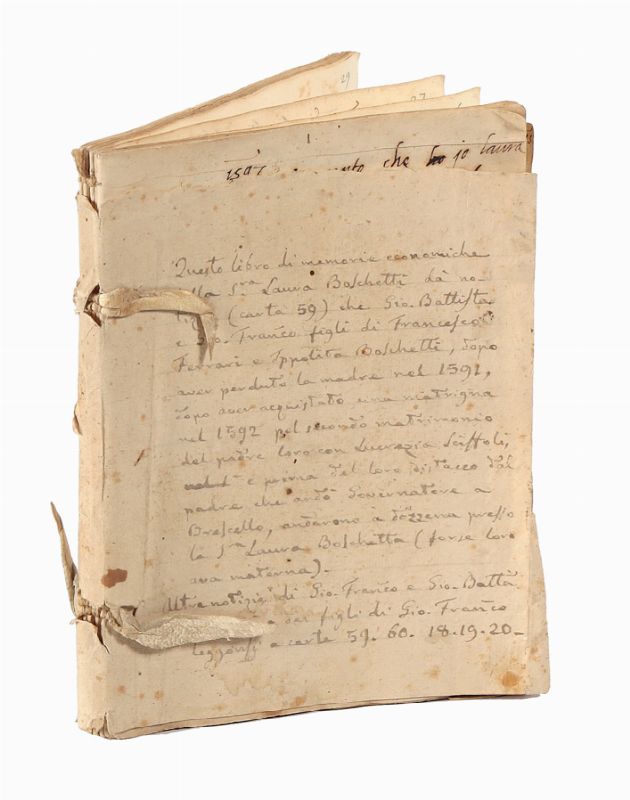 29
27
1
1597 che ho jo laura
Questo libro di memorie economiche
della S.ra Laura Boschetti dà no-
tizia (carta 59) che Gio. Battista
e Gio. Franc.o figli di Francesco
Ferrari e Ippolita Boschetti, dopo
aver perduto la madre nel 1591,
dopo aver acquistato una matrigna
nel 1592 pel secondo matrimonio
del padre loro con Lucrezia
e prima del loro distacco dal
padre che andò Governatore a
Brescello, andarono a dozzena presso
la S.ra Laura Boschetta (forse loro
ava materna).
Altre notizie di Gio. Franc.o e Gio. Batt.a
dei figli di Gio. Franc.o
leggonsi a carte 59. 60. 18. 19. 20-